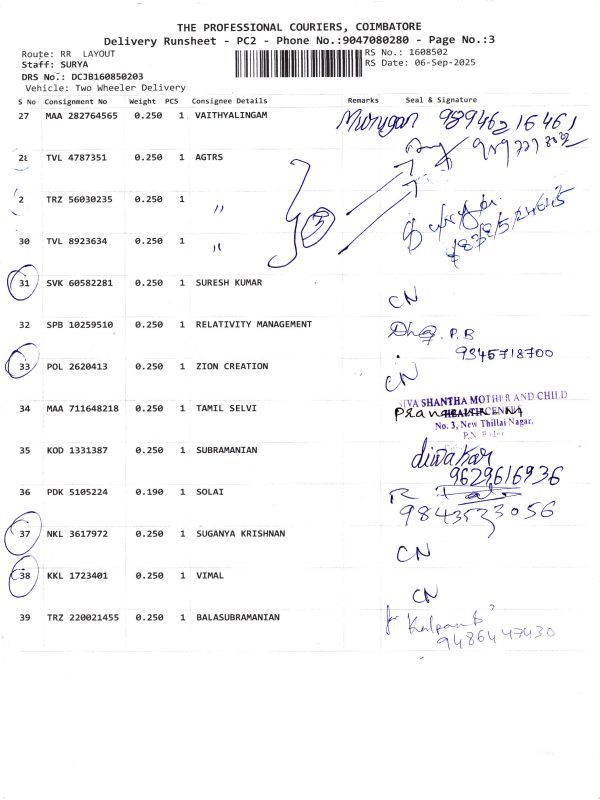 THE PROFESSIONAL COURIERS, COIMBATORE
Delivery Runsheet - PC2 - Phone No.:9047080280 - Page No.:3
Route: RR LAYOUT RS No.: 1608502
Staff: SURYA RS Date: 06-Sep-2025
DRS No.: DCJB160850203
Vehicle: Two Wheeler Delivery
S No Consignment No Weight PCS Consignee Details Remarks Seal & Signature
27 MAA 282764565 0.250 1 VAITHYALINGAM Murugan 9894621646１
28 TVL 4787351 0.250 1 AGTRS
2 TRZ 56030235 0.250 1 〃 3
30 TVL 8923634 0.250 1 〃
31 SVK 60582281 0.250 1 SURESH KUMAR CN
32 SPB 10259510 0.250 1 RELATIVITY MANAGEMENT P.B
9345718700
33 POL 2620413 0.250 1 ZION CREATION CN
SIVA SHANTHA MOTHER AND CHILD
34 MAA 711648218 0.250 1 TAMIL SELVI HEALTH CENTRE
No. 3, New Thillai Nagar,
35 KOD 1331387 0.250 1 SUBRAMANIAN diwakar
9629616936
36 PDK 5105224 0.190 1 SOLAI R
9843523056
37 NKL 3617972 0.250 1 SUGANYA KRISHNAN CN
38 KKL 1723401 0.250 1 VIMAL CN
39 TRZ 220021455 0.250 1 BALASUBRAMANIAN Kalpana
9486447430